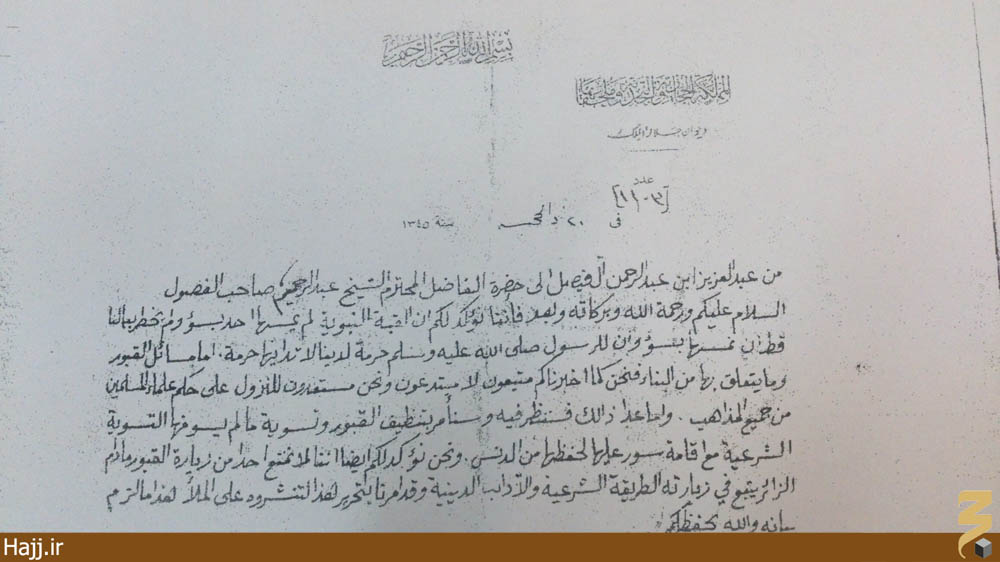 بسم الله الرحمن الرحيم
المملكة الحجازية والنجدية وملحقاتها
ديوان جلالة الملك
عدد
[١١٠٣]
في ٢٠ ذالحجه سنة ١٣٤٥
من عبدالعزيز ابن عبدالرحمن آل فيصل الى حضرة الفاضل المحترم الشيخ عبدالرحيم صاحب الفصول
السلام عليكم ورحمة الله وبركاته وبعد فأننا نؤكد لكم ان القبة النبوية لم يمسها احد بسؤ ولم يخطر ببالنا
قط ان نمسها بسؤ وان للرسول صلى الله عليه وسلم حرمة لدينا لا تدانيها حرمة. اما مسائل القبور
وما يتعلق بها من البناء فنحن كما اخبرناكم متبعون لا مبتدعون ونحن مستعدون للنزول على حكم علماء المسلمين
من جميع المذاهب . واما عدا ذالك فسننظر فيه وسنأمر بتنظيف القبور وتسوية مالم يسو فيها التسوية
الشرعية مع اقامة سور عليها لحفظها من الدنس . ونحن نؤكد لكم ايضا اننا لا نمنع احد من زيارة القبور مادام
الزائر يتبع في زيارته الطريقة الشرعية والآداب الدينية وقد امرنا بتحرير هذا لتنشروه على الملأ هذا ما لزم
بيانه والله يحفظكم
Hajj.ir